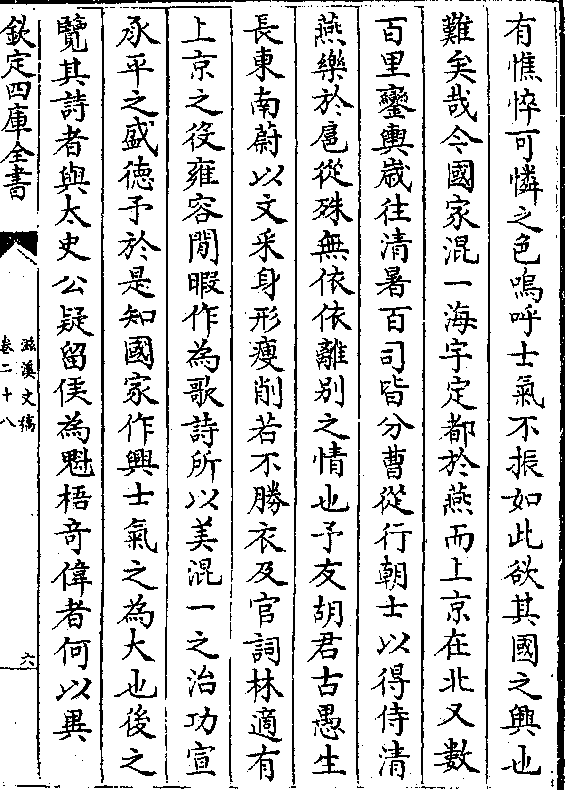 有憔悴可憐之色嗚呼士氣不振如此欲其國之興也
難矣哉今國家混一海宇定都於燕而上京在北又數
百里鑾輿歳往清暑百司皆分曹從行朝士以得侍清
燕樂於扈從殊無依依離别之情也予友胡君古愚生
長東南蔚以文采身形瘦削若不勝衣及官詞林適有
上京之役雍容閒暇作為歌詩所以美混一之治功宣
承平之盛徳予於是知國家作興士氣之為大也後之
覽其詩者與太史公疑留侯為魁梧竒偉者何以異
欽定四庫全書
滋溪文稿
卷二十八
六